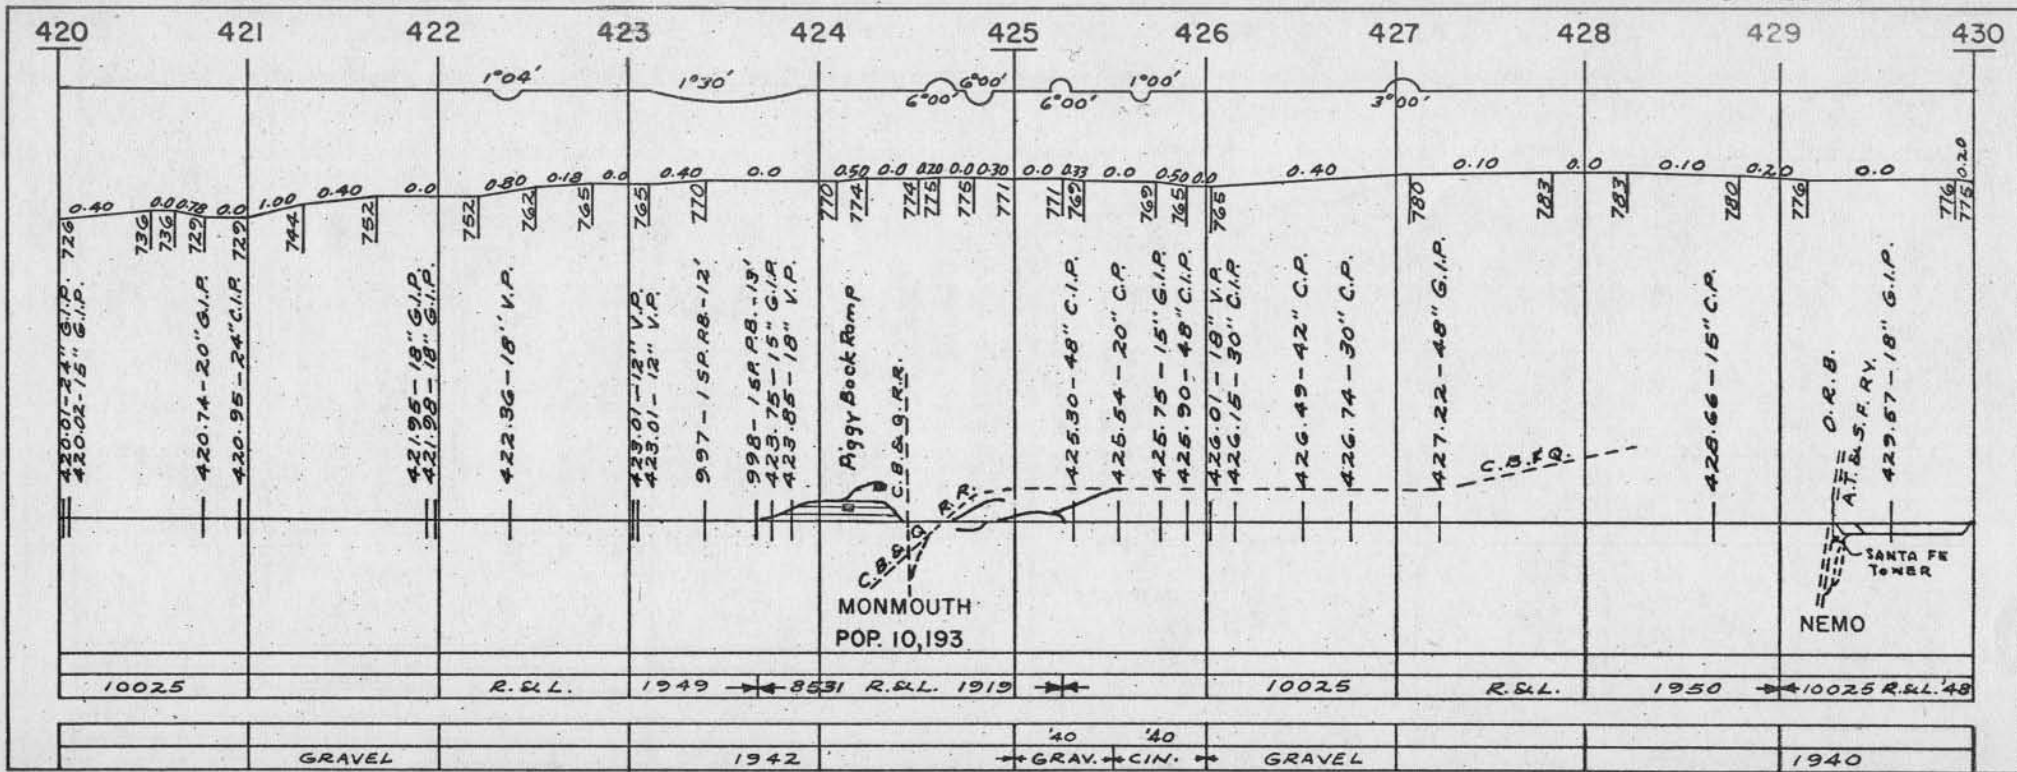 420 421 422 423 424 425 426 427 428 429 430
1°04' 1°30' 6°00' 6°00' 6°00' 1°00' 3°00'
0.40 0.0 0.78 0.0 1.00 0.40 0.0 0.80 0.18 0.0 0.40 0.0 0.50 0.0 0.20 0.0 0.30 0.0 0.33 0.0 0.50 0.0 0.40 0.10 0.0 0.10 0.20 0.0 0.20
726 736 736 729 729 744 752 752 762 765 765 770 770 774 774 775 775 771 771 769 769 765 765 780 783 783 780 776 776 775
420.01-24" G.I.P.
420.02-15" G.I.P.
420.74-20" G.I.P.
420.95-24" C.I.P.
421.95-18" G.I.P.
421.98-18" G.I.P.
422.36-18" V.P.
423.01-12" V.P.
423.01-12" V.P.
997-1 SP. P.B.-12'
998-1 SP. P.B.-13'
423.75-15" G.I.P.
423.85-18" V.P.
Piggy Back Ramp
C.B.&Q. R.R.
C.B.&Q. R.R.
425.30-48" C.I.P.
425.54-20" C.P.
425.75-15" G.I.P.
425.90-48" C.I.P.
426.01-18" V.P.
426.15-30" C.I.P.
426.49-42" C.P.
426.74-30" C.P.
427.22-48" G.I.P.
C.B.&Q.
428.66-15" C.P.
O.R.B.
A.T.&S.F. RY.
429.57-18" G.I.P.
SANTA FE
TOWER
MONMOUTH
POP. 10,193
NEMO
10025 R.&L. 1949 8531 R.&L. 1919 10025 R.&L. 1950 10025 R.&L. '48
'40 '40
GRAVEL 1942 GRAV. CIN. GRAVEL 1940